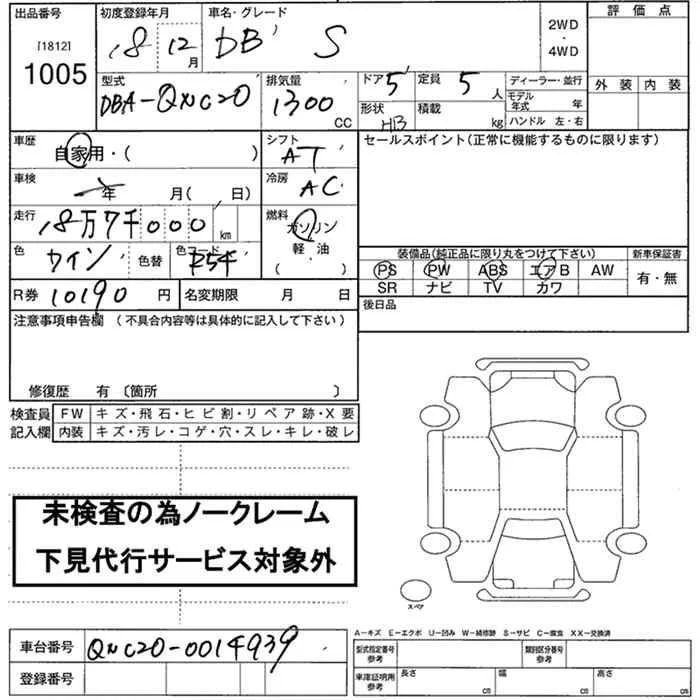 出品番号 初度登録年月 車名・グレード 評価点
[1812] 18 12月 DB S 2WD
1005 ・
4WD
型式 排気量 ドア 定員 ディーラー・並行 外装 内装
DBA-QNC20 1300CC 5 5人 モデル年式 年
形状 HB 積載 kg ハンドル 左・右
車歴 シフト セールスポイント(正常に機能するものに限ります)
自家用・( ) AT
車検 冷房
年 月( 日) AC
走行 燃料
18万7千000km ガソリン
色 ワイン 色替 色コード R54 軽・油 装備品(純正品に限り丸をつけて下さい) 新車保証書
・( ) PS PW ABS エアB AW 有・無
R券 10190円 名変期限 月 日 SR ナビ TV カワ
注意事項申告欄 (不具合内容等は具体的に記入して下さい) 後日品
修復歴 有 〔箇所 〕
検査員 FW キズ・飛石・ヒビ割・リペア跡・X要
記入欄 内装 キズ・汚レ・コゲ・穴・スレ・キレ・破レ
未検査の為ノークレーム
下見代行サービス対象外
スペア
A−キズ E−エクボ U−凹み W−補修跡 S−サビ C−腐食 XX−交換済
車台番号 QNC20-0014939 型式指定番号 参考 類別区分番号 参考
登録番号 車庫証明用 参考 長さ cm 幅 cm 高さ cm